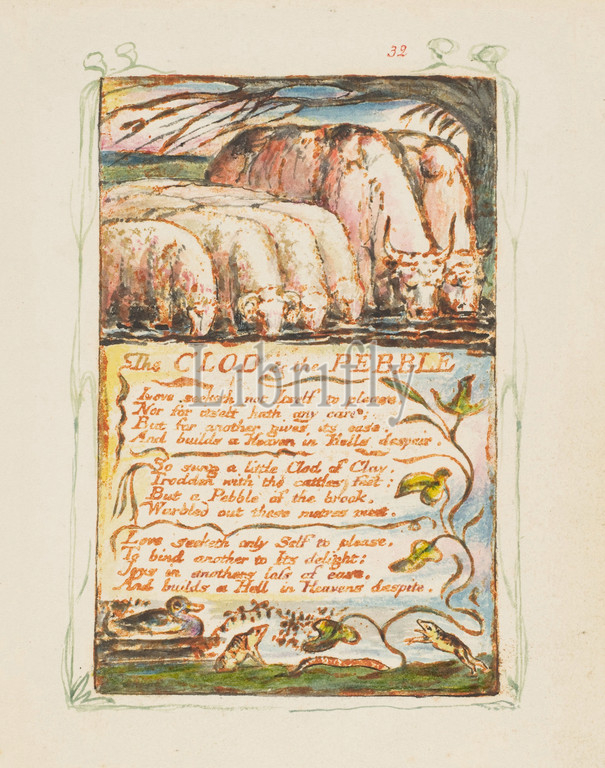 32
The CLOD & the PEBBLE
Love seeketh not Itself to please,
Nor for itself hath any care;
But for another gives its ease,
And builds a Heaven in Hells despair.
So sung a little Clod of Clay,
Trodden with the cattles feet;
But a Pebble of the brook,
Warbled out these metres meet.
Love seeketh only Self to please,
To bind another to Its delight:
Joys in anothers loss of ease,
And builds a Hell in Heavens despite.
Librufly